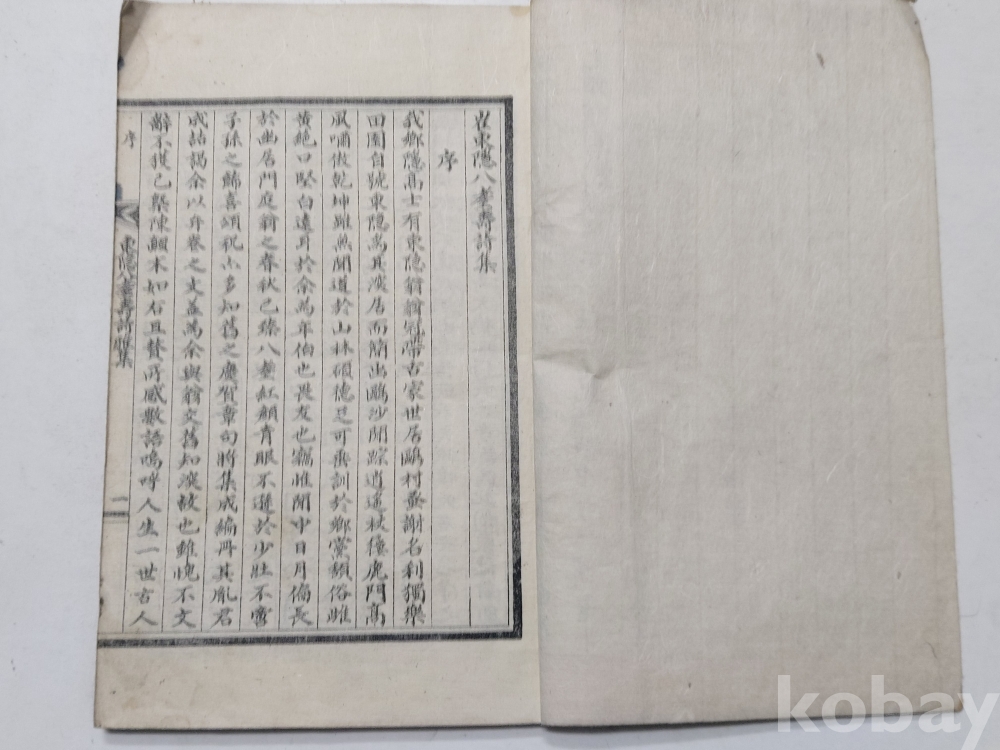 崔東隱八耋壽詩集
序
我鄉隱高士有東隱翁翁冠帶古家世居鷗村蚤謝名利獨樂
田園自號東隱焉其深居而簡出鷗沙閒踪逍遙杖穩鹿門高
風嘯傲乾坤雖無聞道於山林碩德足可垂訓於鄉黨頹俗雌
黃絶口堅白遠耳於余爲年伯也畏友也竊惟閒中日月偏長
於幽居門庭翁之春秋已臻八耋紅顔靑眼不遜於少壯不啻
子孫之餙喜頌祝亦多知舊之賡賀章句將集成編冊其胤君
成喆謁余以弁卷之文盖爲余與翁交舊知深故也雖愧不文
辭不獲已槩陳顚末如右且贊所感數語嗚呼人生一世古人
序
東隱八耋壽詩集
一
kobay